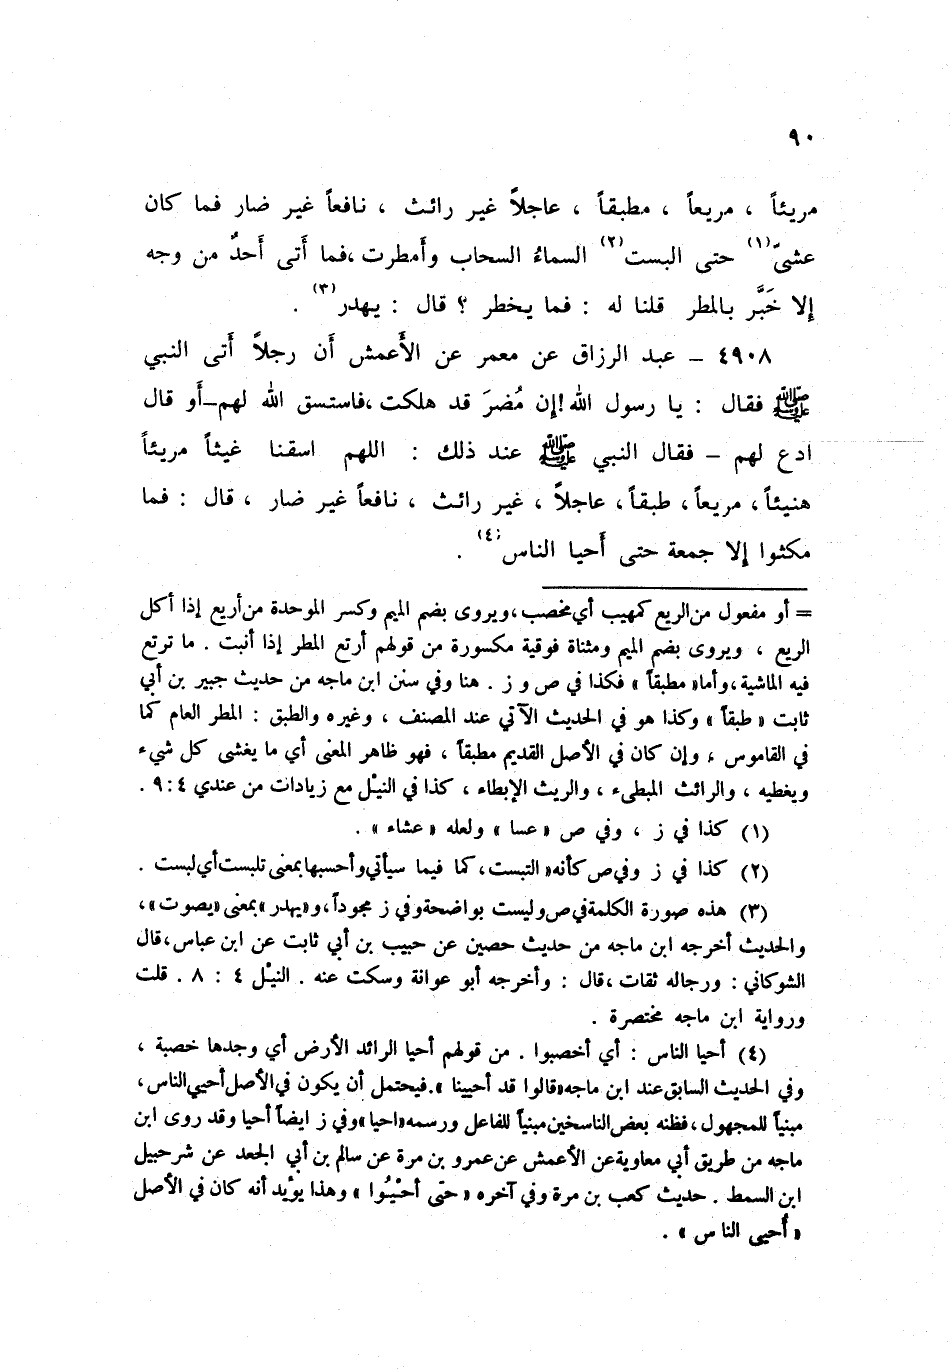 ٩٠
مريئاً ، مريعاً ، مطبقاً ، عاجلاً غير رائث ، نافعاً غير ضار فما كان
عشيّ(١) حتى البست(٢) السماءُ السحاب وأمطرت ،فما أتى أحدٌ من وجه
إلا خَبَّر بالمطر قلنا له : فما يخطر ؟ قال : يهدر(٣) .
٤٩٠٨ – عبد الرزاق عن معمر عن الأعمش أن رجلاً أتى النبي
ﷺ فقال : يا رسول الله !إن مُضرَ قد هلكت ،فاستسق الله لهم–أو قال
ادع لهم – فقال النبي ﷺ عند ذلك : اللهم اسقنا غيثاً مريئاً
هنيئاً ، مريعاً ، طبقاً ، عاجلاً ، غير رائث ، نافعاً غير ضار ، قال : فما
مكثوا إلا جمعة حتى أحيا الناس(٤) .
= أو مفعول من الريع كمهيب أي مخصب ،ويروى بضم الميم وكسر الموحدة من أربع إذا أكل
الربع ، ويروى بضم الميم ومثناة فوقية مكسورة من قولهم أرتع المطر إذا أنبت . ما ترتع
فيه الماشية ،وأما« مطبقاً » فكذا في ص و ز . هنا وفي سنن ابن ماجه من حديث جبير بن أبي
ثابت « طبقاً » وكذا هو في الحديث الآتي عند المصنف ، وغيره والطبق : المطر العام كما
في القاموس ، وإن كان في الأصل القديم مطبقاً ، فهو ظاهر المعنى أي ما يغشى كل شيء
ويغطيه ، والرائث المبطىء ، والريث الإبطاء ، كذا في النيْل مع زيادات من عندي ٤ : ٩ .
(١) كذا في ز ، وفي ص « عسا » ولعله « عشاء » .
(٢) كذا في ز وفي ص كأنه« التبست ، كما فيما سيأتي وأحسبها بمعنى تلبست أي لبست .
(٣) هذه صورة الكلمة في ص وليست بواضحة وفي ز مجوداً ،و« يهدر » بمعنى « يصوت » ،
والحديث أخرجه ابن ماجه من حديث حصين عن حبيب بن أبي ثابت عن ابن عباس ،قال
الشوكاني : ورجاله ثقات ،قال : وأخرجه أبو عوانة وسكت عنه . النيْل ٤ : ٨ . قلت
ورواية ابن ماجه مختصرة .
(٤) أحيا الناس : أي أخصبوا . من قولهم أحيا الرائد الأرض أي وجدها خصبة ،
وفي الحديث السابق عند ابن ماجه « قالوا قد أحيينا » .فيحتمل أن يكون في الأصل أحيي الناس ،
مبنياً للمجهول ،فظنه بعض الناسخين مبنياً للفاعل ورسمه « احيا » وفي ز ايضاً أحيا وقد روى ابن
ماجه من طريق أبي معاوية عن الأعمش عن عمرو بن مرة عن سالم بن أبي الجعد عن شرحبيل
ابن السمط . حديث كعب بن مرة وفي آخره « حتى أحْيَُوا » وهذا يؤيد أنه كان في الأصل
« أُحيى الناس » .